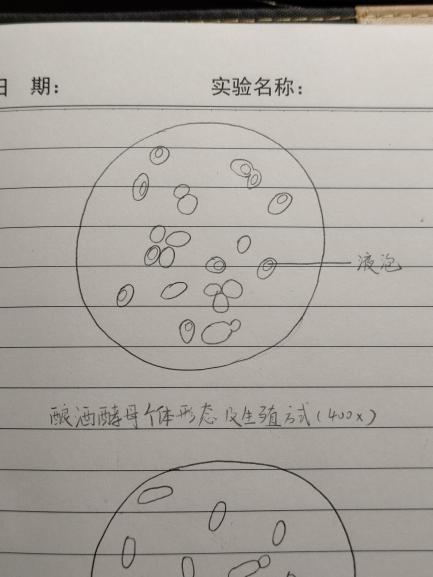 日 期： 实验名称：
液泡
酿酒酵母个体形态及生殖方式(400×)